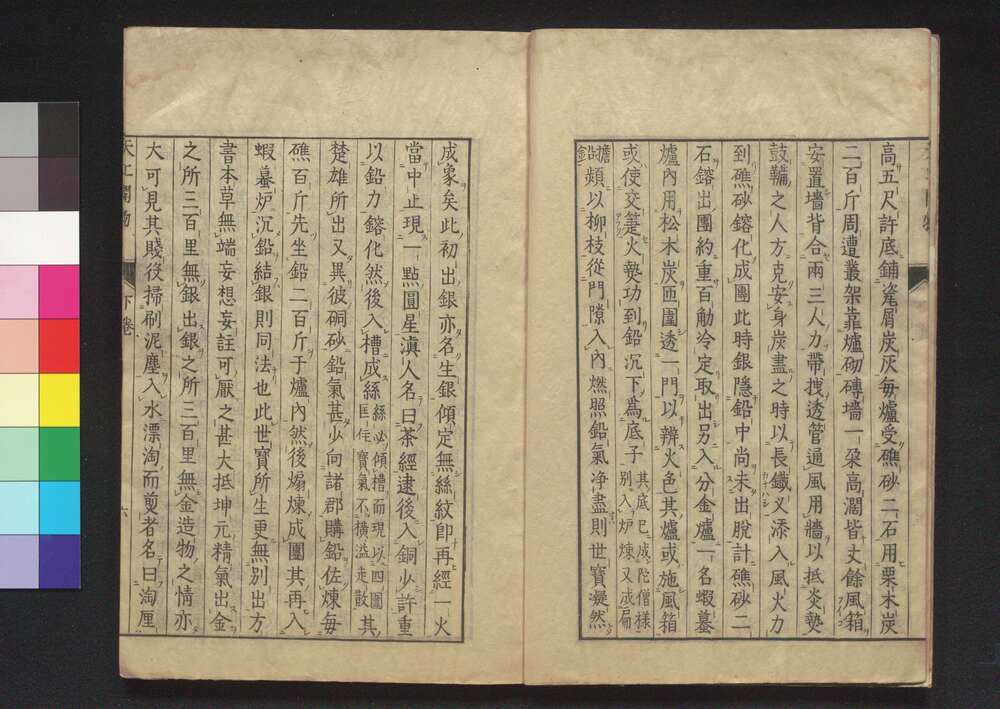 高五尺許底鋪瓷屑炭灰每爐受礁砂二石用栗木炭
二百斤周遭叢架靠爐砌磚墻一朶高濶皆丈餘風箱
安置墻背合兩三人力帶拽透管通風用牆以抵炎𤍠
鼓鞴之人方克安身炭盡之時以長鐵叉添入風火力
到礁砂鎔化成團此時銀隱鉛中尚未出脫計礁砂二
石鎔出團約重百觔冷定取出另入分金爐一名蝦蟇
爐內用松木炭匝圍透一門以辨火色其爐或施風箱
或使交箑火𤍠功到鉛沉下爲底子其底已成陀僧樣別入炉煉又成扁
擔鉛頻以柳枝從門隙入內燃照鉛氣净盡則世寶凝然
成象矣此初出銀亦名生銀傾定無絲紋卽再經一火
當中止現一點圓星滇人名曰茶經逮後入銅少許重
以鉛力鎔化然後入槽成絲絲必傾槽而現以四圍匡住寶氣不橫溢走散其
楚雄所出又異彼硐砂鉛氣甚少向諸郡購鉛佐煉每
礁百斤先坐鉛二百斤于爐內然後煽煉成團其再入
蝦蟇炉沉鉛結銀則同法也此世寶所生更無別出方
書本草無端妄想妄註可厭之甚大抵坤元精氣出金
之所三百里無銀出銀之所三百里無金造物之情亦
大可見其賤役掃刷泥塵入水漂淘而煎者名曰淘厘
天工開物
下卷
六